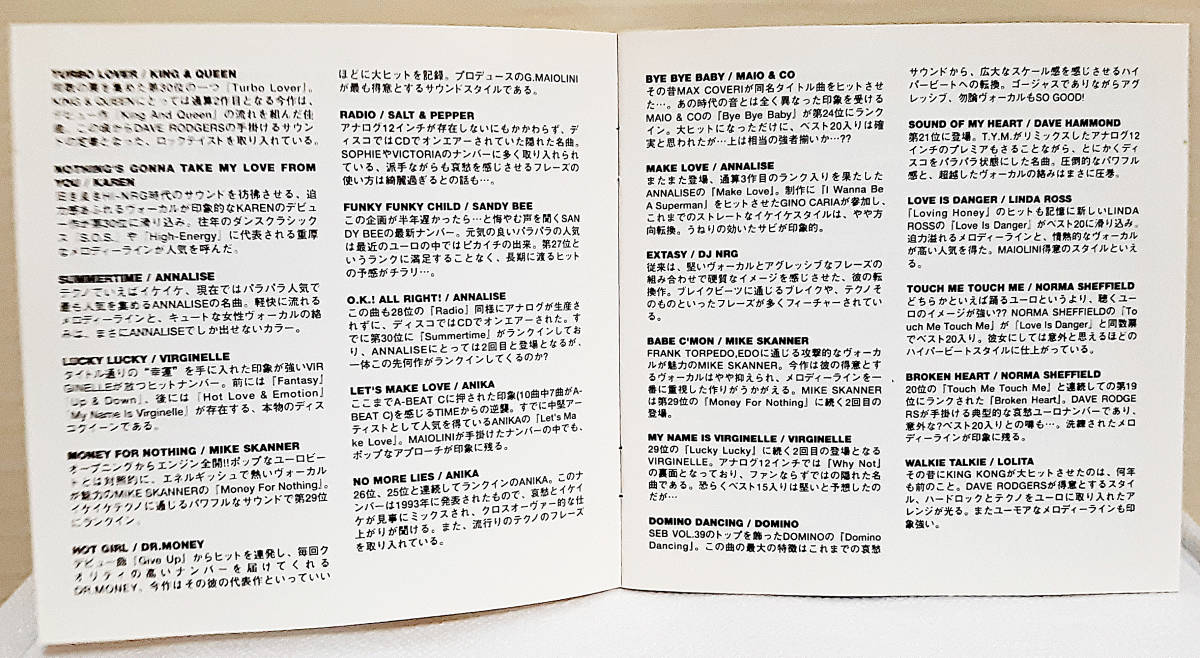 TURBO LOVER / KING & QUEEN
の票を集めた第30位の一つ『Turbo Lover』。
KING & QUEENにとっては通算2作目となる今作は、
デビュー作『King And Queen』の流れを組んだ佳
作。この頃からDAVE RODGERSの手掛けるサウン
ドの定番となった、ロックテイストを取り入れている。
NOTHING'S GONNA TAKE MY LOVE FROM
YOU / KAREN
HI-NRG時代のサウンドを彷彿させる、迫
力あふれるヴォーカルが印象的なKARENのデビュ
ー作が第30位に滑り込み。往年のダンスクラシック
ス『S.O.S.』や『High-Energy』に代表される重厚
なメロディーラインが人気を呼んだ。
SUMMERTIME / ANNALISE
テクノでいえばイケイケ、現在ではパラパラ人気で
最も人気を集めるANNALISEの名曲。軽快に流れる
メロディーラインと、キュートな女性ヴォーカルの絡
みは、まさにANNALISEでしか出せないカラー。
LUCKY LUCKY / VIRGINELLE
タイトル通りの“幸運”を手に入れた印象が強いVIR
GINELLEが放つヒットナンバー。前には『Fantasy』
『Up & Down』、後には『Hot Love & Emotion』
『My Name Is Virginelle』が存在する、本物のディス
コクイーンである。
MONEY FOR NOTHING / MIKE SKANNER
オープニングからエンジン全開!!ポップなユーロビー
トとは対照的に、エネルギッシュで熱いヴォーカル
が魅力のMIKE SKANNERの『Money For Nothing』。
イケイケテクノに通じるパワフルなサウンドで第29位
にランクイン。
HOT GIRL / DR.MONEY
デビュー曲『Give Up』からヒットを連発し、毎回ク
オリティの高いナンバーを届けてくれる
DR.MONEY。今作はその彼の代表作といっていい
ほどに大ヒットを記録。プロデュースのG.MAIOLINI
が最も得意とするサウンドスタイルである。
RADIO / SALT & PEPPER
アナログ12インチが存在しないにもかかわらず、デ
ィスコではCDでオンエアーされていた隠れた名曲。
SOPHIEやVICTORIAのナンバーに多く取り入れられ
ている、派手ながらも哀愁を感じさせるフレーズの
使い方は綺麗過ぎるとの話も…。
FUNKY FUNKY CHILD / SANDY BEE
この企画が半年遅かったら…と悔やむ声を聞くSAN
DY BEEの最新ナンバー。元気の良いパラパラの人気
は最近のユーロの中ではピカイチの出来。第27位と
いうランクに満足することなく、長期に渡るヒット
の予感がチラリ…。
O.K.! ALL RIGHT! / ANNALISE
この曲も28位の『Radio』同様にアナログが生産さ
れずに、ディスコではCDでオンエアーされた。す
でに第30位に『Summertime』がランクインしてお
り、ANNALISEにとっては2回目と登場となるが、
一体この先何作がランクインしてくるのか?
LET'S MAKE LOVE / ANIKA
ここまでA-BEAT Cに押された印象(10曲中7曲がA-
BEAT C)を感じるTIMEからの逆襲。すでに中堅アー
ティストとして人気を得ているANIKAの『Let's Ma
ke Love』。MAIOLINIが手掛けたナンバーの中でも、
ポップなアプローチが印象に残る。
NO MORE LIES / ANIKA
26位、25位と連続してランクインのANIKA。このナ
ンバーは1993年に発表されたもので、哀愁とイケイ
ケが見事にミックスされ、クロスオーヴァー的な仕
上がりが聞ける。また、流行りのテクノのフレーズ
を取り入れている。
BYE BYE BABY / MAIO & CO
その昔MAX COVERIが同名タイトル曲をヒットさせ
た…。あの時代の音とは全く異なった印象を受ける
MAIO & COの『Bye Bye Baby』が第24位にランク
イン。大ヒットになっただけに、ベスト20入りは確
実と思われたが…上は相当の強者揃いか…??
MAKE LOVE / ANNALISE
またまた登場、通算3作目のランク入りを果たした
ANNALISEの『Make Love』。制作に『I Wanna Be
A Superman』をヒットさせたGINO CARIAが参加し、
これまでのストレートなイケイケスタイルは、やや方
向転換。うねりの効いたサビが印象的。
EXTASY / DJ NRG
従来は、堅いヴォーカルとアグレッシブなフレーズの
組み合わせで硬質なイメージを感じさせた、彼の転
換作。ブレイクビーツに通じるブレイクや、テクノそ
のものといったフレーズが多くフィーチャーされてい
る。
BABE C'MON / MIKE SKANNER
FRANK TORPEDO,EDOに通じる攻撃的なヴォーカ
ルが魅力のMIKE SKANNER。今作は彼の得意とす
るヴォーカルはやや抑えられ、メロディーラインを一
番に重視した作りがうかがえる。MIKE SKANNER
は第29位の『Money For Nothing』に続く2回目の
登場。
MY NAME IS VIRGINELLE / VIRGINELLE
29位の『Lucky Lucky』に続く2回目の登場となる
VIRGINELLE。アナログ12インチでは『Why Not』
の裏面となっており、ファンならずではの隠れた名
曲である。恐らくベスト15入りは堅いと予想したの
だが…
DOMINO DANCING / DOMINO
SEB VOL.39のトップを飾ったDOMINOの『Domino
Dancing』。この曲の最大の特徴はこれまでの哀愁
サウンドから、広大なスケール感を感じさせるハイ
パービートへの転換。ゴージャスでありながらアグ
レッシブ、勿論ヴォーカルもSO GOOD!
SOUND OF MY HEART / DAVE HAMMOND
第21位に登場。T.Y.M.がリミックスしたアナログ12
インチのプレミアもさることながら、とにかくディ
スコをパラパラ状態にした名曲。圧倒的なパワフル
感と、超越したヴォーカルの絡みはまさに圧巻。
LOVE IS DANGER / LINDA ROSS
『Loving Honey』のヒットも記憶に新しいLINDA
ROSSの『Love Is Danger』がベスト20に滑り込み。
迫力溢れるメロディーラインと、情熱的なヴォーカル
が高い人気を得た。MAIOLINI得意のスタイルといえ
る。
TOUCH ME TOUCH ME / NORMA SHEFFIELD
どちらかといえば踊るユーロというより、聴くユー
ロのイメージが強い?? NORMA SHEFFIELDの『To
uch Me Touch Me』が『Love Is Danger』と同数票
でベスト20入り。彼女にしては意外と思えるほどの
ハイパービートスタイルに仕上がっている。
BROKEN HEART / NORMA SHEFFIELD
20位の『Touch Me Touch Me』と連続しての第19
位にランクされた『Broken Heart』。DAVE RODGE
RSが手掛ける典型的な哀愁ユーロナンバーであり、
意外な?ベスト20入りとの噂も…。洗練されたメロ
ディーラインが印象に残る。
WALKIE TALKIE / LOLITA
その昔にKING KONGが大ヒットさせたのは、何年
も前のこと。DAVE RODGERSが得意とするスタイ
ル、ハードロックとテクノをユーロに取り入れたア
レンジが光る。またユーモアなメロディーラインも印
象強い。